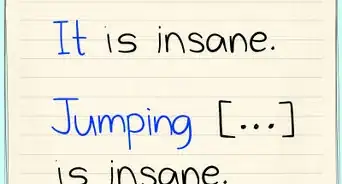 It is insane.
Jumping [...]
is insane.